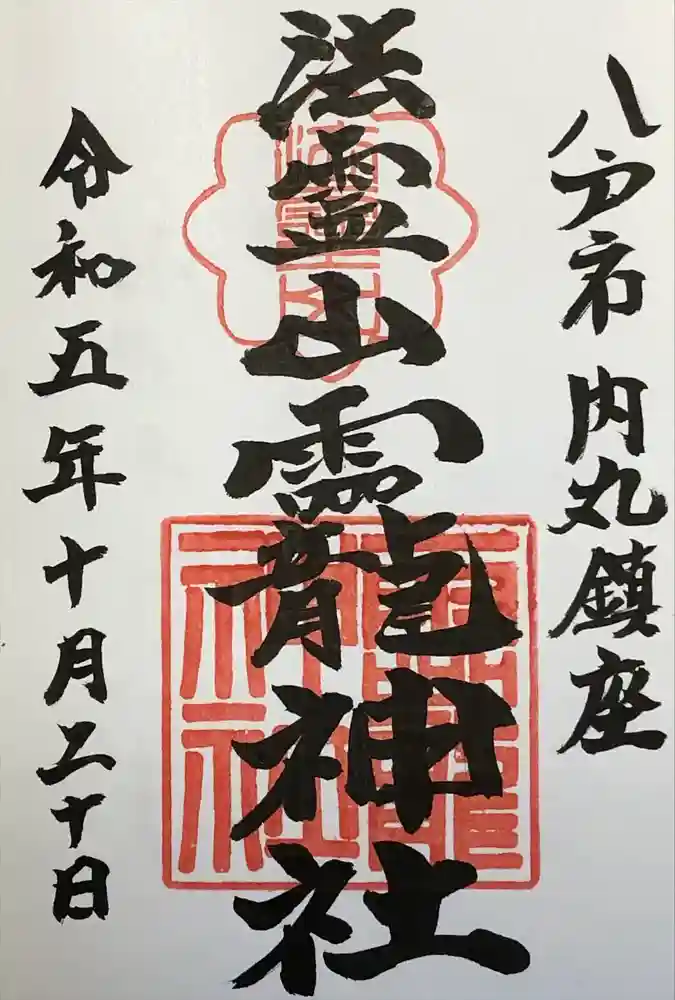 八戸市 内丸鎮座
法霊山龗神社
令和五年十月二十日